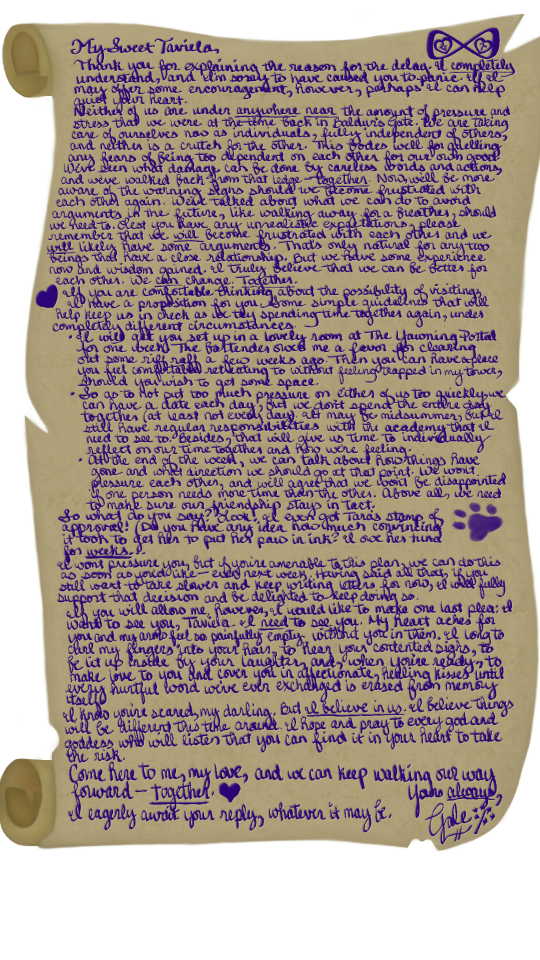 My Sweet Taviela,
Thank you for explaining the reason for the delay. I completely
understand, and I'm sorry to have caused you to panic. If I
may offer some encouragement, however, perhaps I can help
quiet your heart.
Neither of us are under anywhere near the amount of pressure and
stress that we were at the time back in Baldur's Gate. We are taking
care of ourselves now as individuals, fully independent of others,
and neither is a crutch for the other. This bodes well for quelling
any fears of being too dependent on each other for our own good.
We've seen what damage can be done by careless words and actions,
and we've walked back from that ledge - together. Now we'll be more
aware of the warning signs should we become frustrated with
each other again. We've talked about what we can do to avoid
arguments in the future, like walking away for a breather, should
we need to. Lest you have any unrealistic expectations, please
remember that we will become frustrated with each other and we
will likely have some arguments. That's only natural for any two
beings that have a close relationship. But we have some experience
now and wisdom gained. I truly believe that we can be better for
each other. We can change. Together.
If you are comfortable thinking about the possibility of visiting,
I have a proposition for you. Some simple guidelines that will
help keep us in check as we try spending time together again, under
completely different circumstances.
• I will get you set up in a lovely room at The Yawning Portal
for one week. The bartender owes me a favor for clearing
out some riff raff a few weeks ago. Then you can have a place
you feel comfortable retreating to without feeling trapped in my tower,
should you wish to get some space.
• So as to not put too much pressure on either of us too quickly, we
can have a date each day, but we don't spend the entire day
together (at least not every day). It may be midsummer, but I'll
still have regular responsibilities with the academy that I
need to see to. Besides, that will give us time to individually
reflect on our time together and how we're feeling.
• At the end of the week, we can talk about how things have
gone and what direction we should go at that point. We won't
pressure each other, and will agree that we won't be disappointed
if one person needs more time than the other. Above all, we need
to make sure our friendship stays in tact.
So what do you say? Look! I even got Tara's stamp of
approval! Do you have any idea how much convincing
it took to get her to put her paw in ink? I owe her tuna
for weeks.
I won't pressure you, but if you're amenable to this plan, we can do this
as soon as you'd like - even next week. Having said all that, if you
still want to take slower and keep writing letters for now, I will fully
support that decision and be delighted to keep doing so.
If you will allow me, however, I would like to make one last plea: I
want to see you, Taviela. I need to see you. My heart aches for
you and my arms feel so painfully empty without you in them. I long to
curl my fingers into your hair, to hear your contented sighs, to
be lit up inside by your laughter, and, when you're ready, to
make love to you and cover you in affectionate, healing kisses until
every hurtful word we've ever exchanged is erased from memory
itself.
I know you're scared, my darling. But I believe in us. I believe things
will be different this time around. I hope and pray to every god and
goddess who will listen that you can find it in your heart to take
the risk.
Come here to me, my love, and we can keep walking our way
forward — together.
Yours always,
I eagerly await your reply, whatever it may be.
Gale